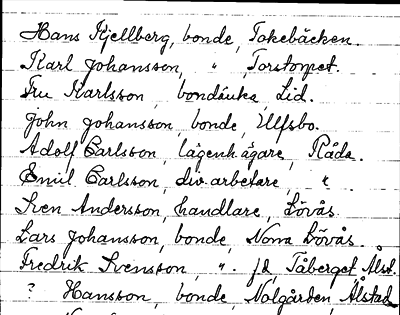 Hans Kjellberg, bonde, Tokebäcken.
Karl Johansson, " Torstorpet.
Fru Karlsson, bondänka, Lid.
John Johansson, bonde, Ulfsbo.
Adolf Carlsson, lägenh.ägare, Råda.
Emil Carlsson, div. arbetare, "
Sven Andersson, handlare, Lövås.
Lars Johansson, bonde, Norra Lövås.
Fredrik Svensson, " Tåberget Ålst.
? Hansson, bonde, Nolgården, Ålstad